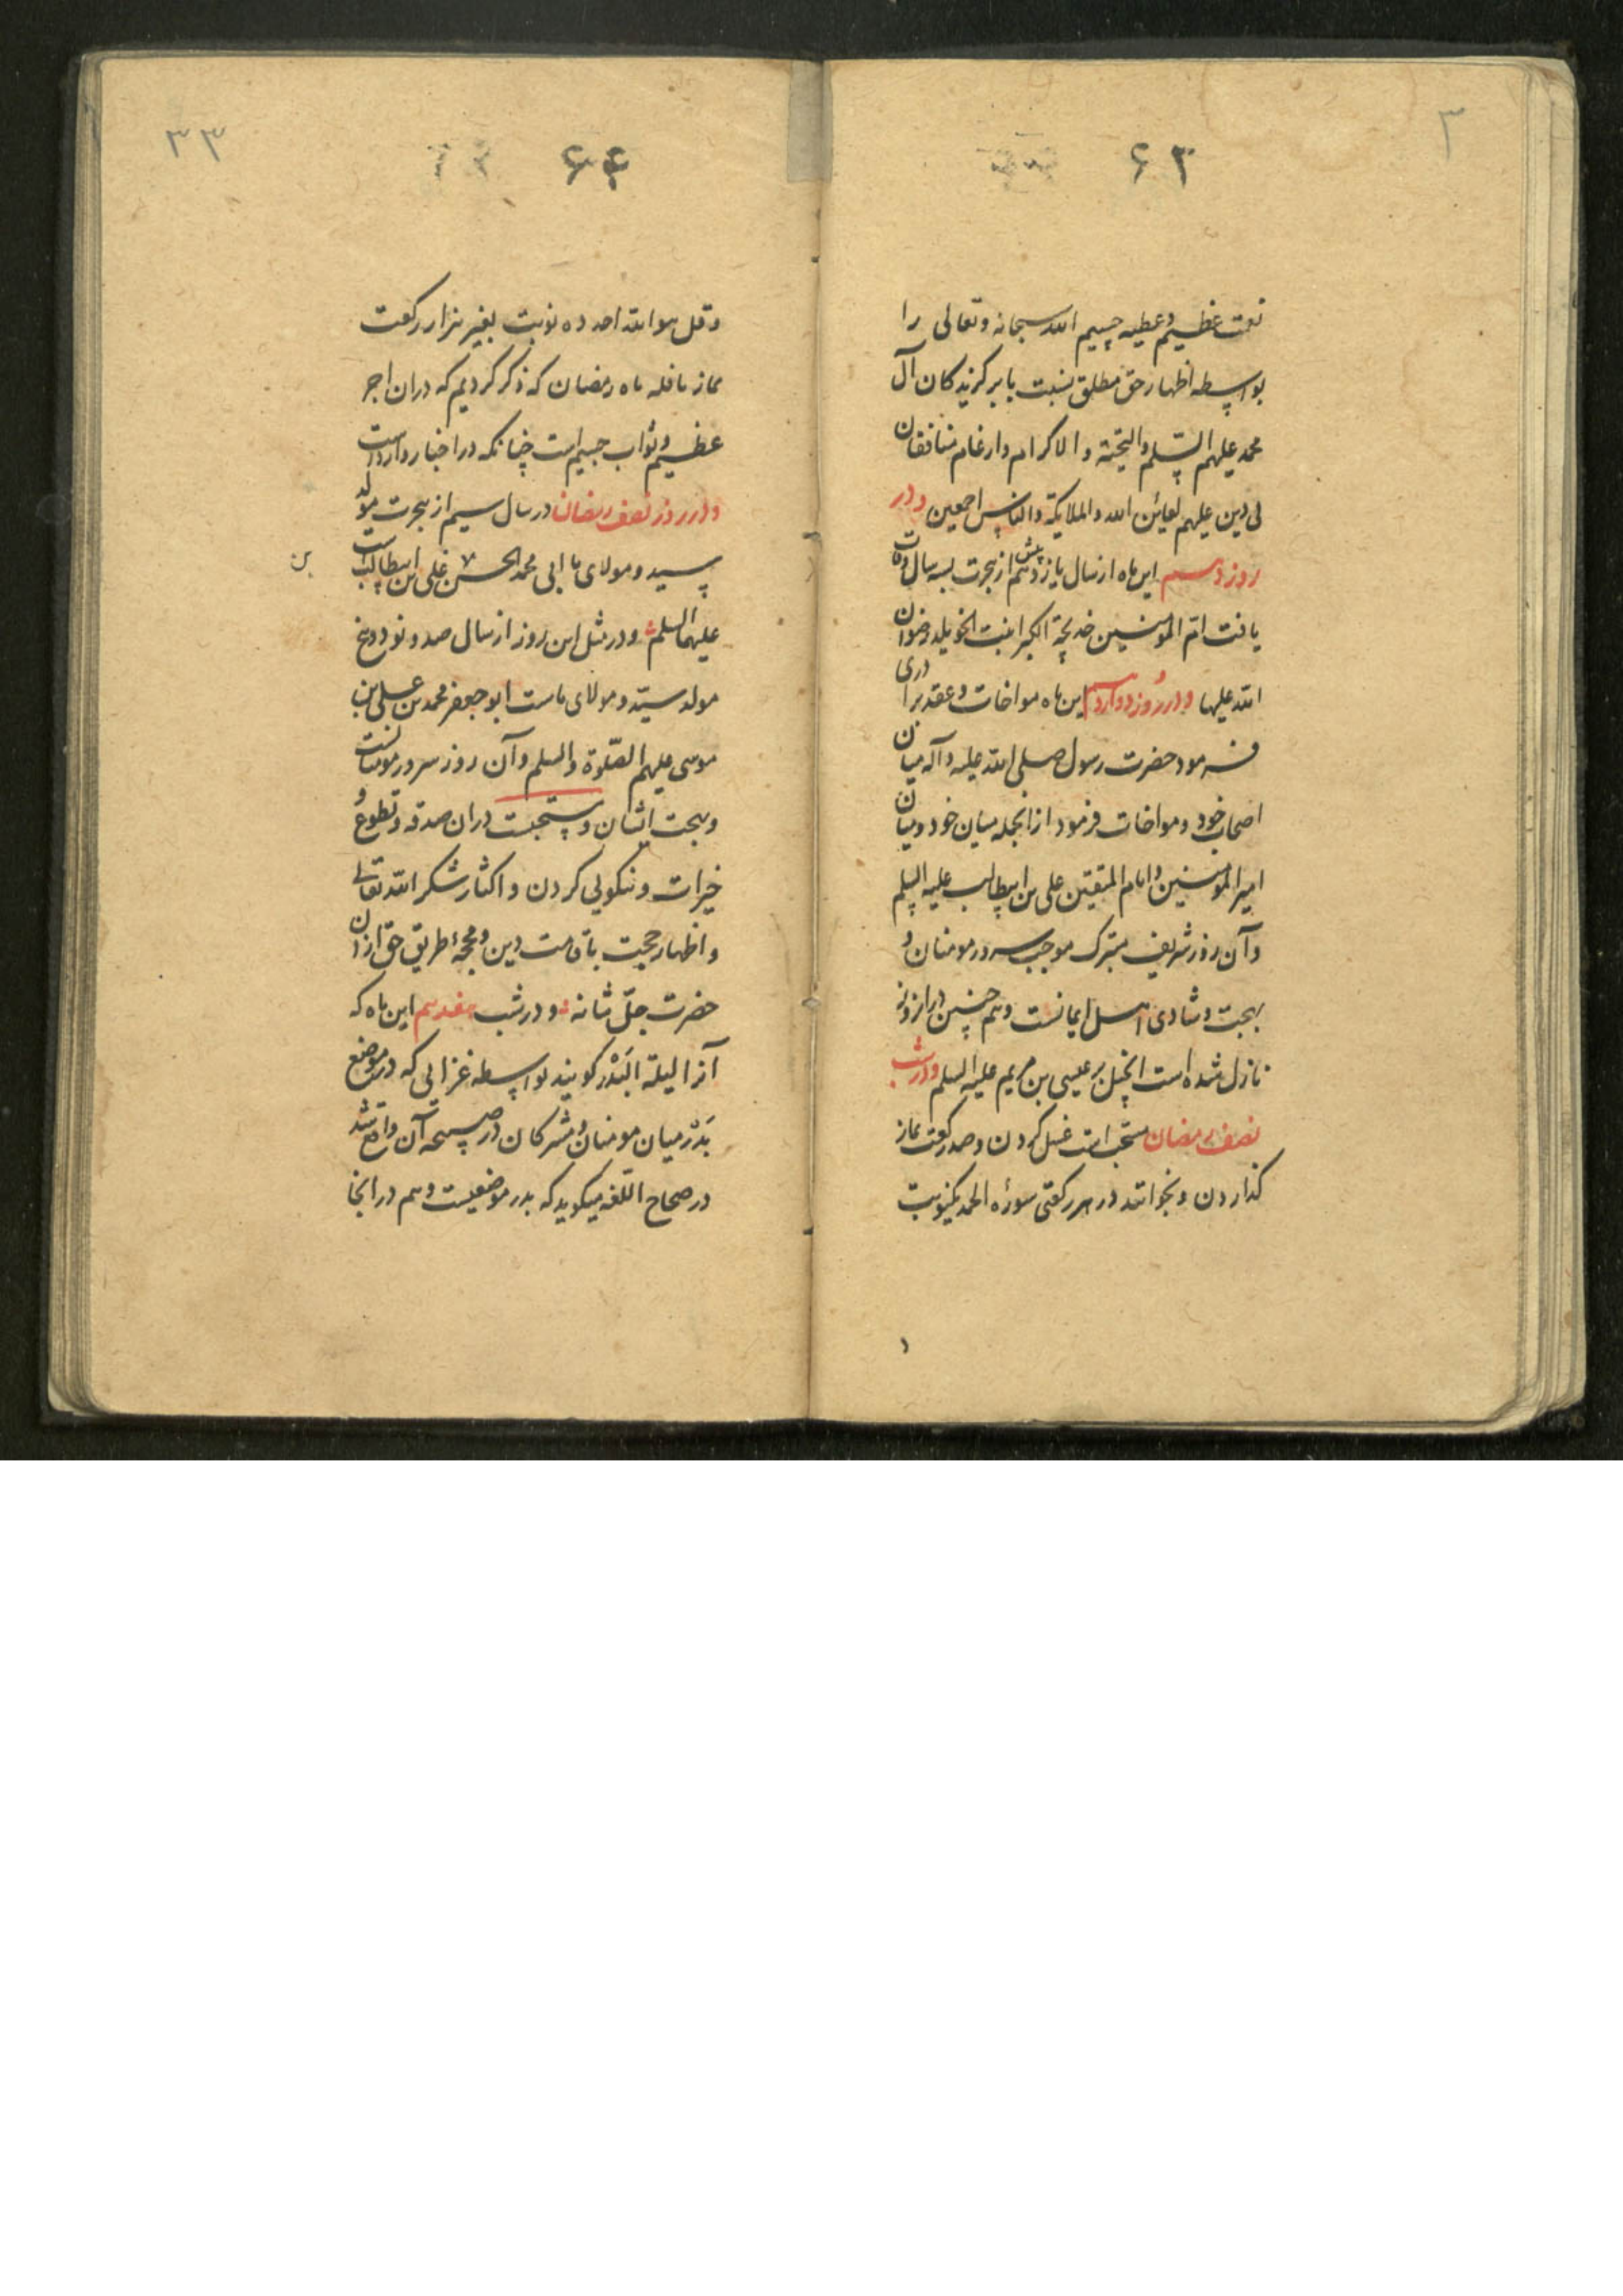 ۶۳
نعمت عظیم و عطیه جسیم الله سبحانه و تعالی را
بواسطه اظهار حق مطلق نسبت با برکزیدکان آل
محمد علیهم السلم و التحیة و الاکرام و ارغام منافقان
بی دین علیهم لعاین الله و الملایکة و الناس اجمعین و در
روز دهم این ماه از سال یازدهم پیش از هجرت بسه سال وفات
یافت ام المومنین خدیجة الکبرا بنت الخویلد رضوان
الله علیها و در روز دوازدهم این ماه مواخات و عقد برادری
فرمود حضرت رسول صلی الله علیه و آله میان
اصحاب خود و مواخات فرمود از انجمله میان خود و میان
امیر المومنین و امام المتقین علی بن ابیطالب علیه السلم
و آن روز شریف متبرک موجب سرور مومنان و
بهجت و شادی اهل ایمانست و هم چنین در این روز
نازل شده است انجیل بر عیسی بن مریم علیه السلم و در شب
نصف رمضان مستحب است غسل کردن و صد رکعت نماز
کذاردن و بخواند در هر رکعتی سوره الحمد یکنوبت
۳۳
۶۴
و قل هو الله احد ده نوبت بغیر هزار رکعت
نماز نافله ماه رمضان که ذکر کردیم که در ان اجر
عظیم و ثواب جسیم است چنانکه در اخبار وارد است
و در روز نصف رمضان در سال سیم از هجرت مولد
سید و مولای ما ابی محمد الحسن بن علی بن ابیطالب است
علیهما السلم و در مثل این روز از سال صد و نود و پنج
مولد سید و مولای ماست ابو جعفر محمد بن علی بن
موسی علیهم الصلوة و السلم و آن روز سرور مومنانست
و بهجت ایشان و مستحبست در ان صدقه و تطوع و
خیرات و نیکویی کردن و اکثار شکر الله تعالی
و اظهار حجت باقامت دین و محجة طریق حق از ان
حضرت جل شانه و در شب هفدهم این ماه که
آنرا لیلة البدر کویند بواسطه غزایی که در موضع
بدر میان مومنان و مشرکان در صبیحه آن واقع شد
در صحاح اللغه میکوید که بدر موضعیست و هم در انجا